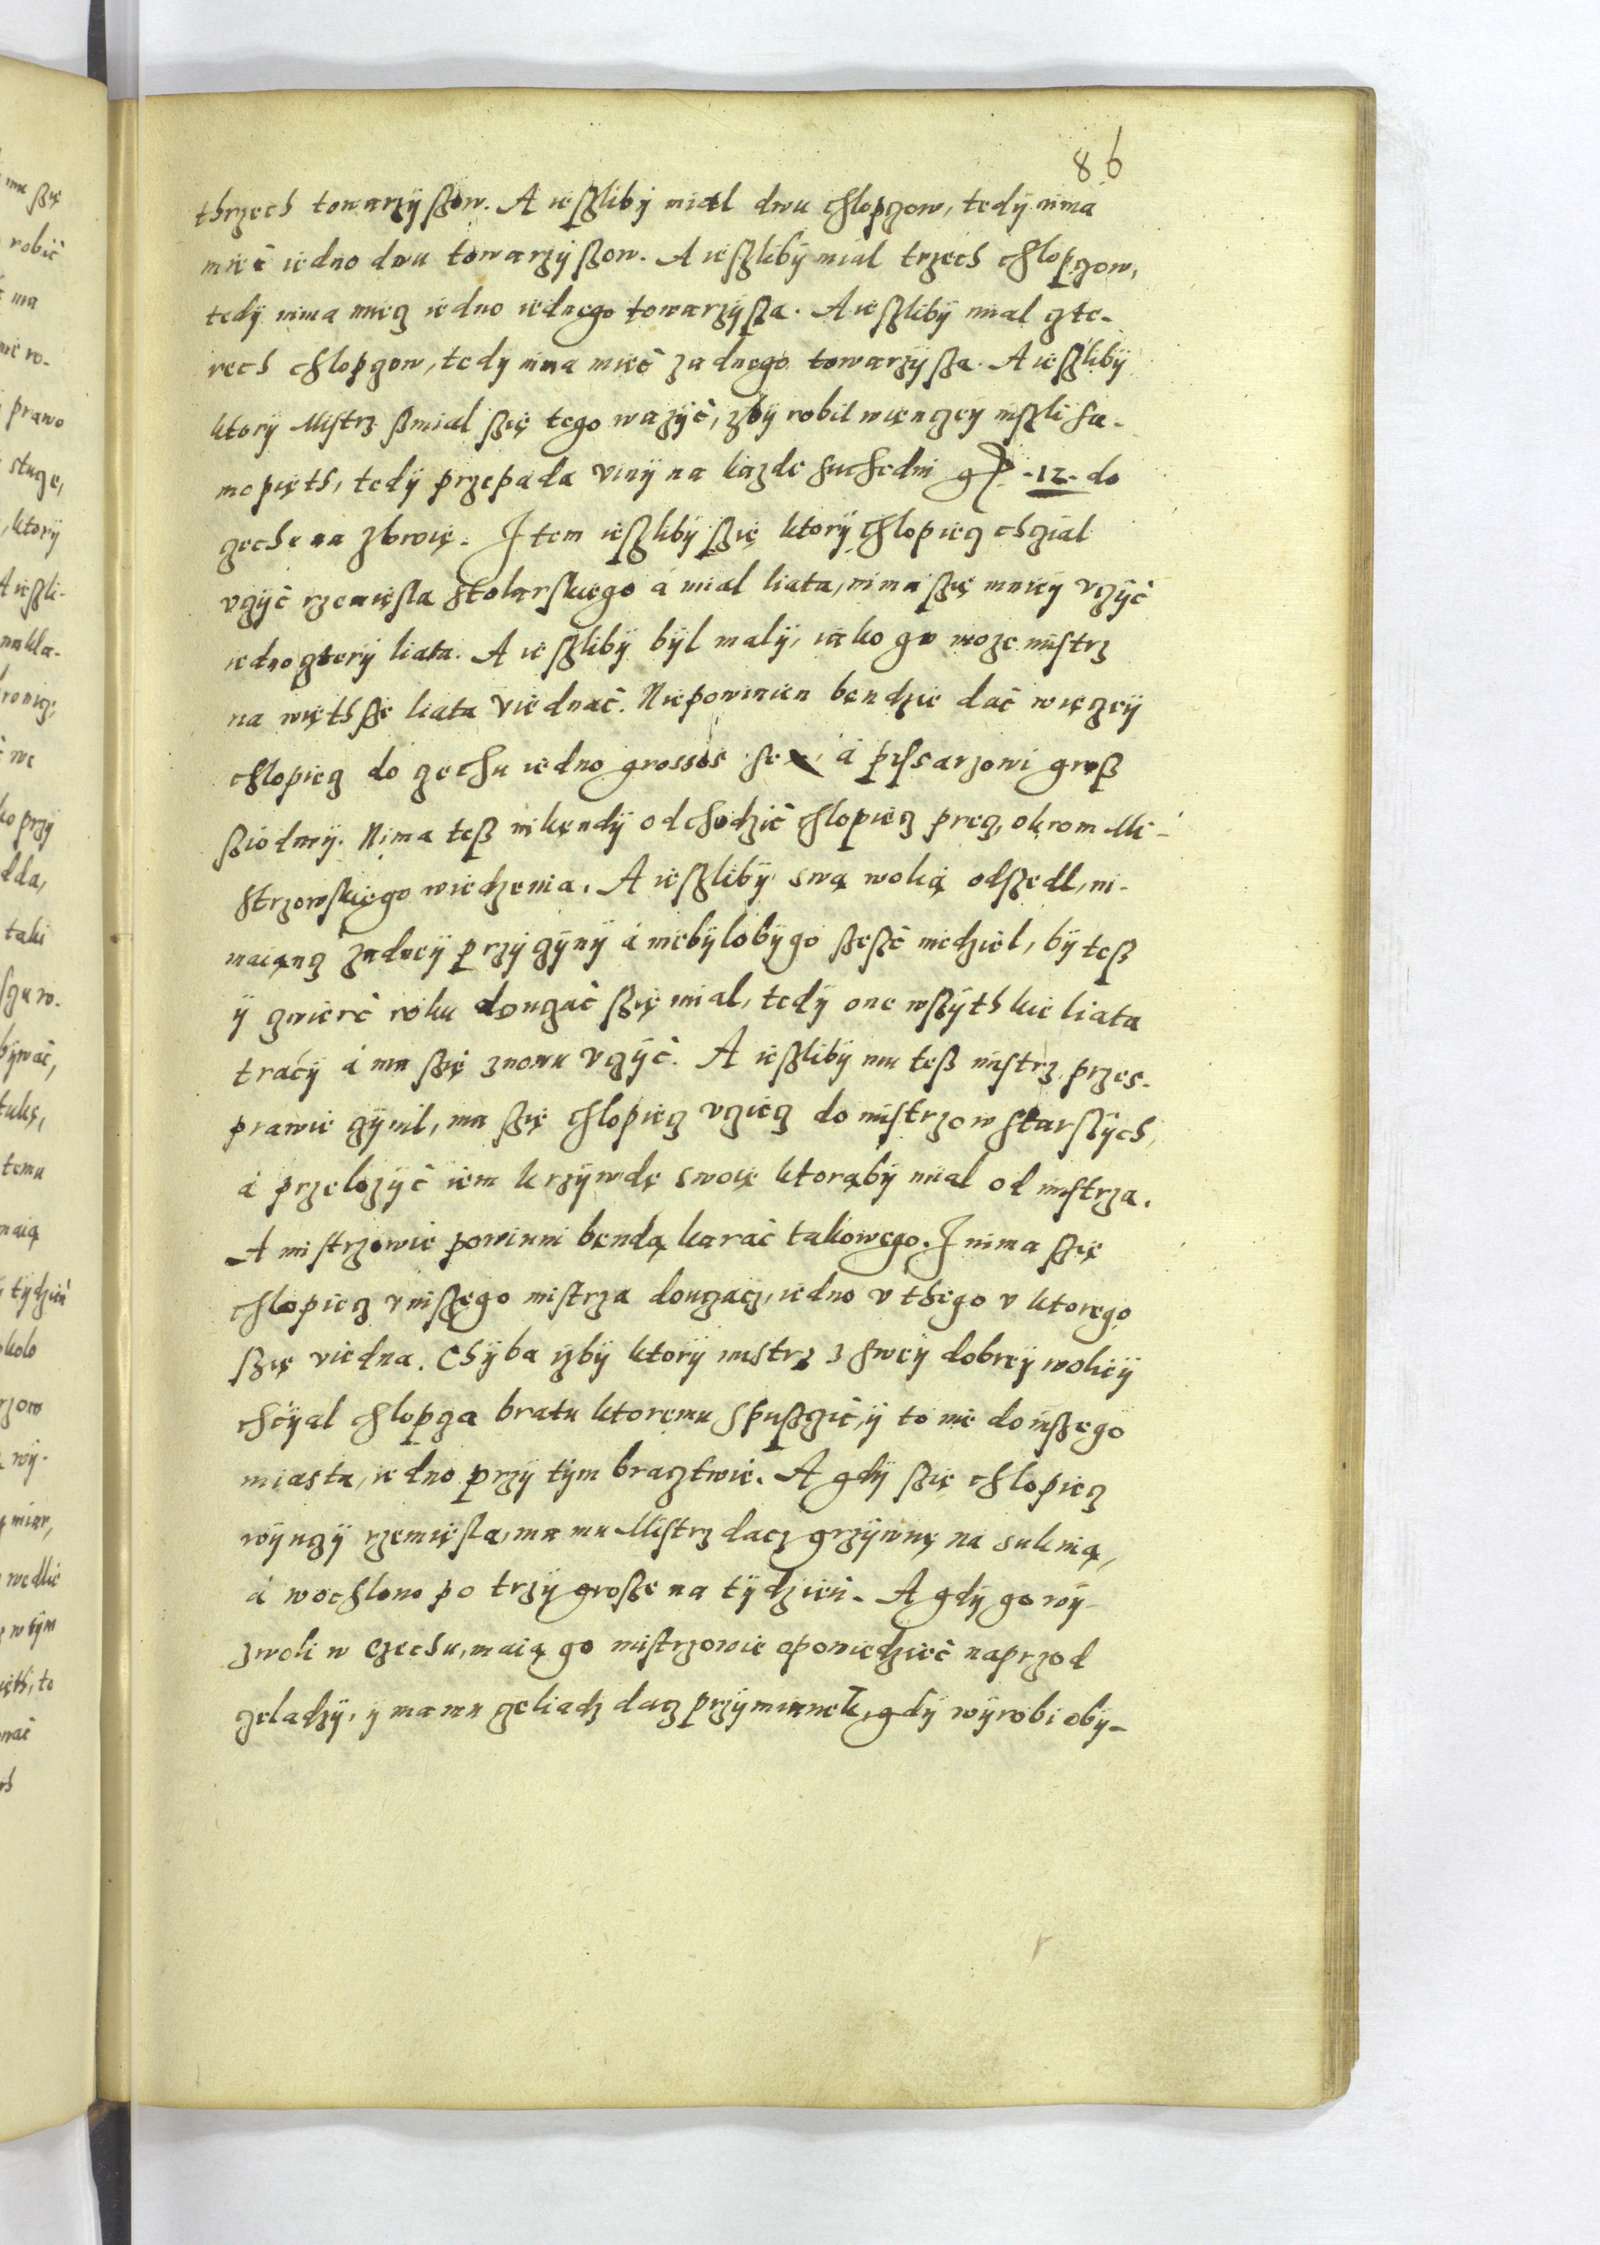 86
thrzech towarzyßow. A ießliby mial dwu chlopzow, tedy nima
mieć iedno dwu towarzyßow. A ießliby mial trzech chlopzow,
tedy nima miez iedno iednego towarzyßa. A ießliby mial czte-
rech chlopzow, tedy nima mieć zadnego towarzyßa. A ießliby
ktory Mistrz ßmial ßię tego wazyć, zby robil więnzey nißli sa-
mopięth, tedy przepada viny na kazde suchedni g -12- do
zechu na zbroię. Item ießliby ßię ktory chlopiez chzial
vzyć rzemięsla stolarskiego á mial liata, nima ßię mniey vzyć
iedno ztery liata. A ießliby byl maly, iako go moze mistrz
na więthße liata viednać. Niepowinien bendzie dać więzey
chlopiez do zechu iedno grossos sex, á pissarzowi groß
ßiodmy. Nima teß nikendy odchodzić chlopiez prez, okrom Mi-
strzowskiego wiedzenia. A ießliby swą wolią odßedl, ni-
maiąnz zadney przyzyny á niebylobygo ßeßć niedziel, by teß
y zwierć roku douzać ßię mial, tedy one wßythkie liata
traćy á ma ßię znowu vzyć. A ießliby mu teß mistrz przes-
prawie zynil, ma ßię chlopiez vziez do mistrzow starßych,
á przelozyć iem krzywdę swoię ktorąby mial od mistrza.
A mistrzowie powinni bendą karać takowego. I nima ßię
chlopiez v nißego mistrza douzacz, iedno v thego v ktorego
ßię viedna. Chyba izby ktory mistrz z swey dobrey woliey
chćyal chlopza bratu ktoremu spußzić, y to nie do inßego
miasta, iedno przy tym braztwie. A gdy ßię chlopiez
wyuzy rzemięsla, ma mu Mistrz dacz grzywnę na suknią,
á wochlono po trzy große na tydzień. A gdy go wy-
zwoli w czechu, maią go mistrzowie opowiedzieć naprzod
zeladzy, y ma mu zeliadz dacz przymiunek, gdy wyrobi oby-